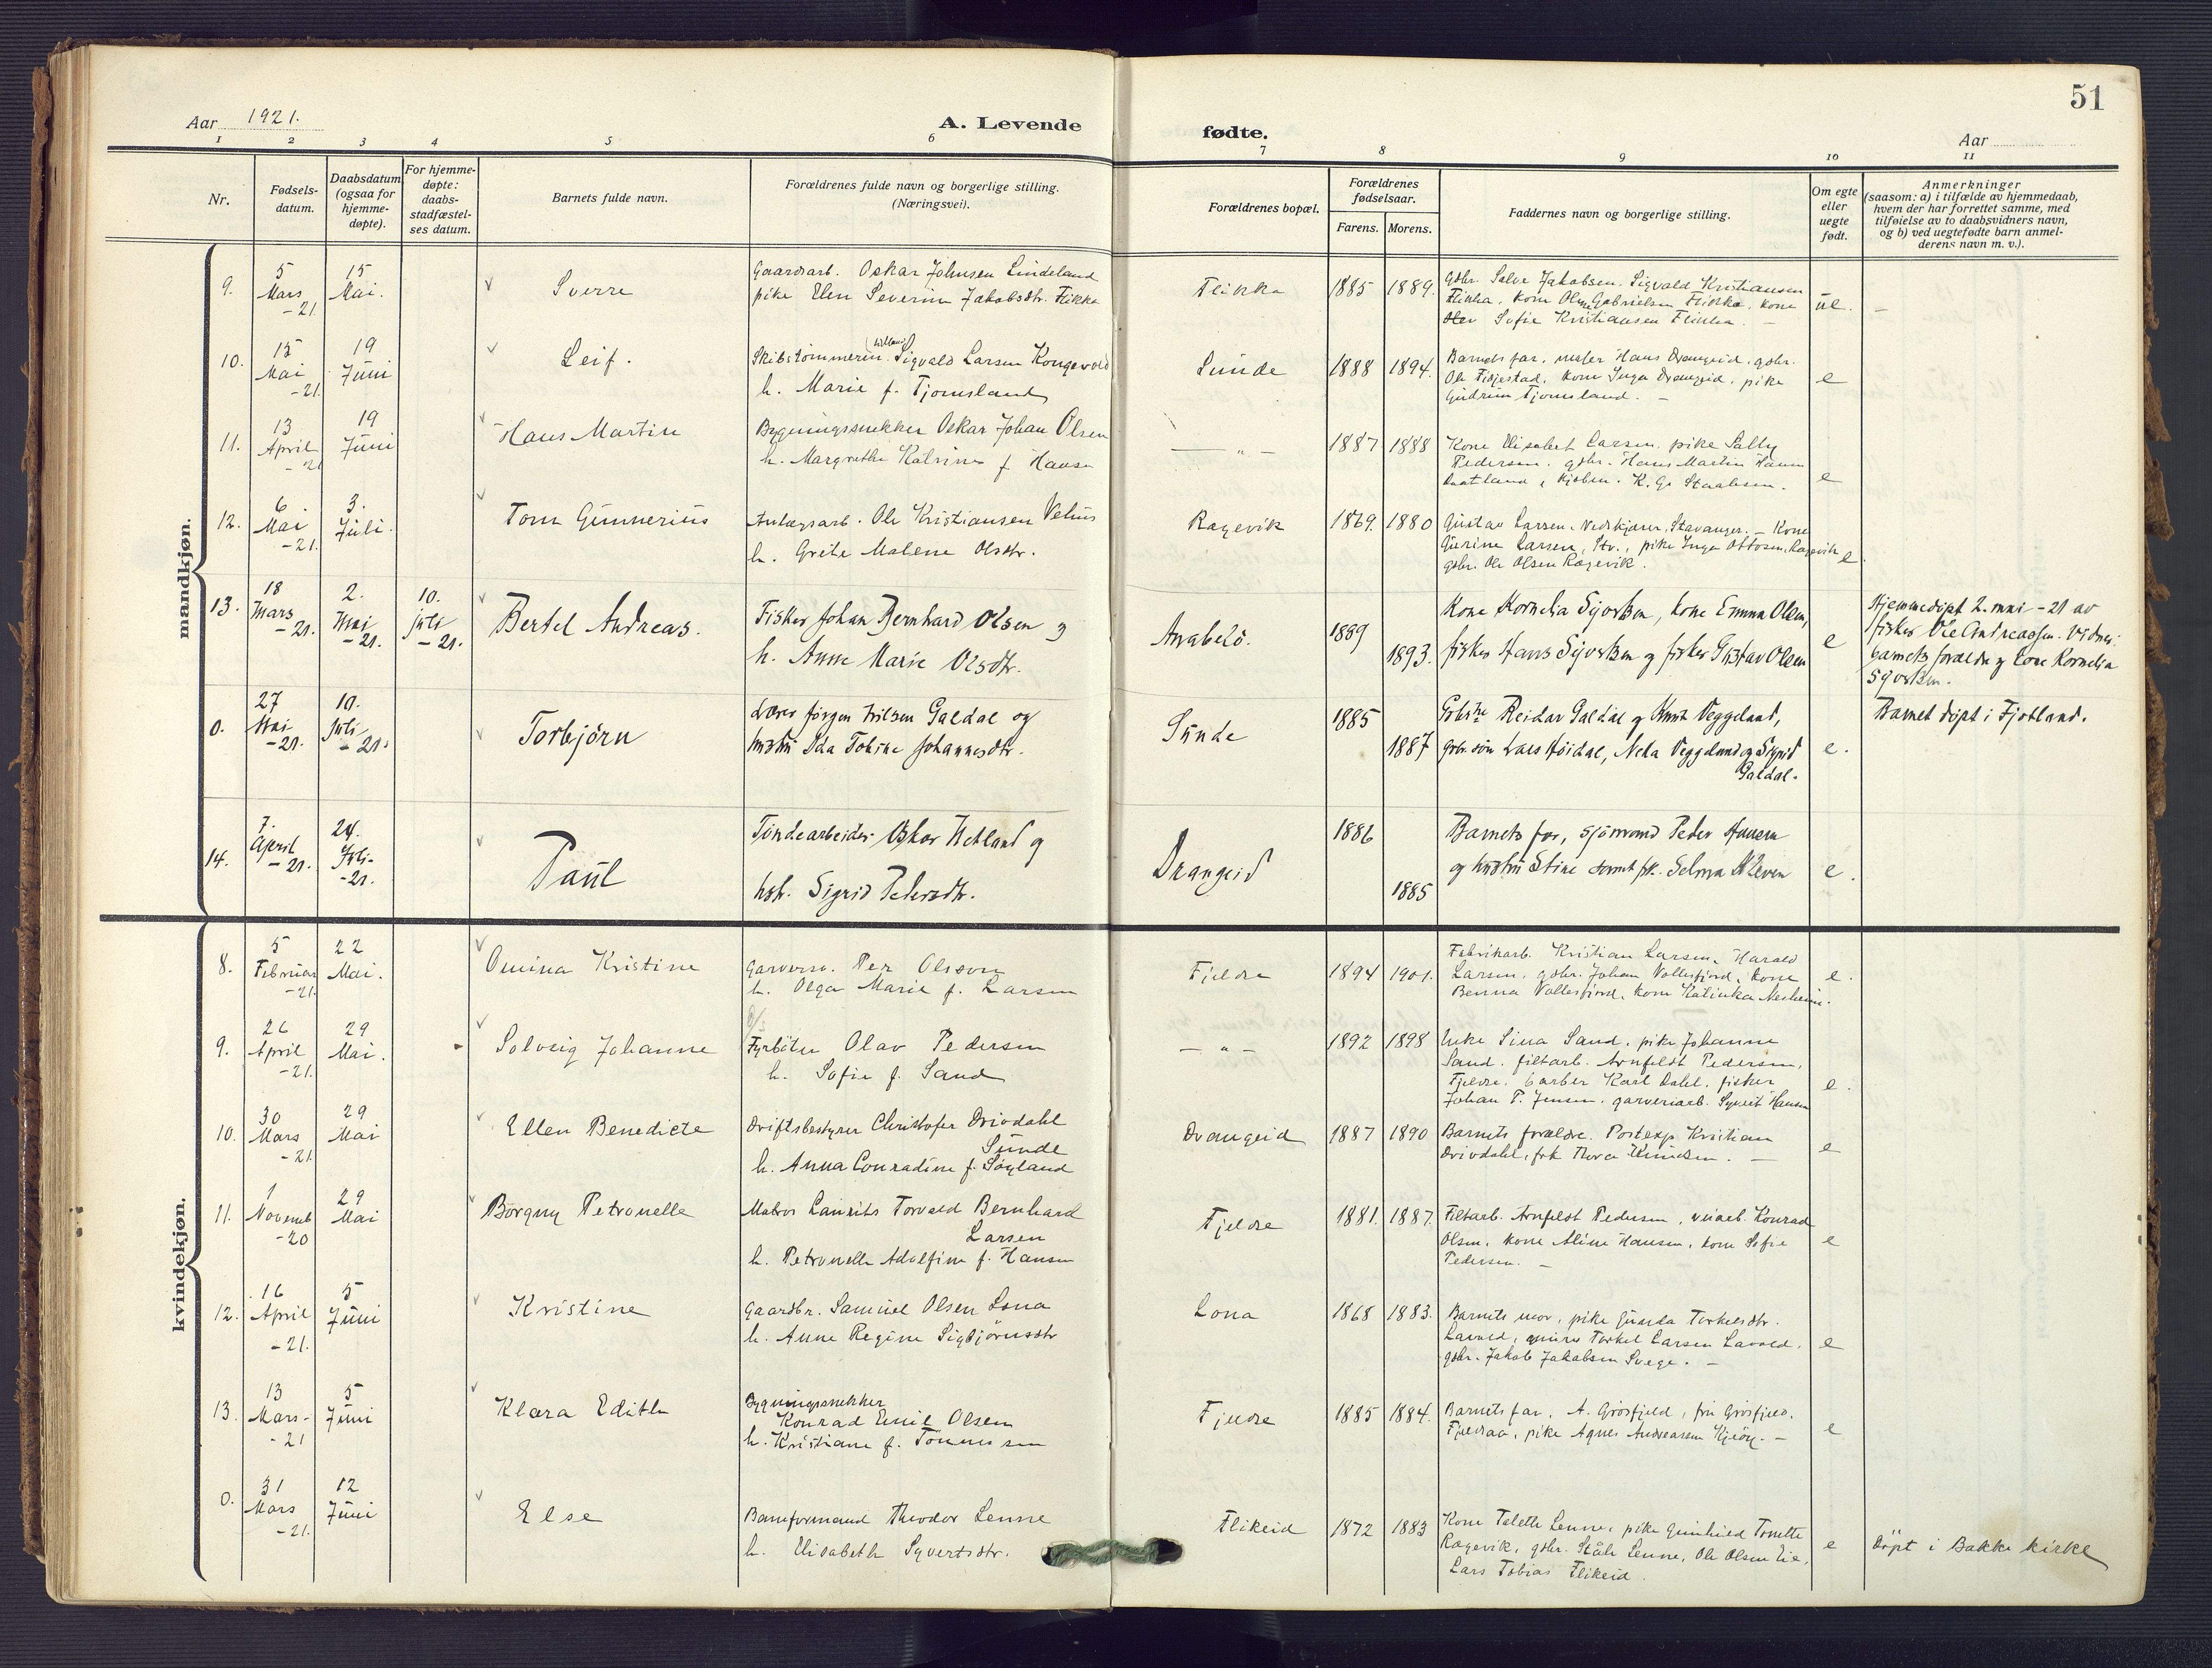 51
Aar 1921.
A. Levende fødte.
Aar
1 2 3 4 5 6 7 8 9 10 11
Nr.
Fødsels-
datum.
Daabsdatum
(ogsaa for
hjemme-
døpte).
For hjemme-
døpte:
daabs-
stadfæstel-
ses datum.
Barnets fulde navn.
Forældrenes fulde navn og borgerlige stilling.
(Næringsvei).
Forældrenes bopæl.
Forældrenes
fødselsaar.
Farens. Morens.
Faddernes navn og borgerlige stilling.
Om egte
eller
uegte
født.
Anmerkninger
(saasom: a) i tilfælde av hjemmedaab,
hvem der har forrettet samme, med
tilføielse av to daabsvidners navn,
og b) ved uegtefødte barn anmel-
derens navn m. v.).
mandkjøn.
9.
5
Mars
-21
15
Mai.
Sverre
Gaardsarb. Oskar Johnsen Lindeland
pike Elen Severine Jakobsdtr. Flikka
Flikka
1885 1889.
Gdbr. Salve Jakobsen. Sigvald Kristiansen
Flikka, kone Oline Gabrielsen Flikka, kone
Sofie Kristiansen Flikka. -
ue.
-
10.
15
Mai
-21.
19
Juni
Leif.
Skibstømmerm. Sigvald Larsen Kongevold
h. Marie f. Tjomsland
Sunde
1888 1894.
Barnets far. Hans Drangeid. gdbr.
Ole Fidjestad. kone Inga Drangeid. pike
Gudrun Tjomsland. -
e
11.
13
April
-21
19
Juni
Hans Martin
Bygningssnekker Oskar Johan Olsen
h. Margrethe Katrine f. Hansen
— " -
1887 1888
Kone Elisabet Larsen. pike Sally
Pedersen. gdbr. Hans Martin Hansen
kjøbm. K. G. Staalesen.
e
12.
6
Mai
-21.
3.
Juli.
Tom Gunnerius
Anlægsarb. Ole Kristiansen
h. Grete Malene Olsdtr.
Ragevik
1869. 1880
Gustav Larsen. Stavanger. - Kone
Gurine Larsen, Stv., pike Inga Ottosen, Ragevik
gdbr. Ole Olsen Ragevik.
e.
13.
18
Mars
-21.
2.
Mai
-21.
10.
Juli
-21.
Bertel Andreas.
Fisker Johan Bernhard Olsen og
h. Anne Marie Olsdtr.
Anabelø.
1889
1893.
Kone Kornelia Syvertsen, kone Emma Olsen,
fisker Hans Syvertsen og fisker Gustav Olsen
e
Hjemmedøpt 2. mai -21 av
fisker Ole Andreassen. Vidner:
barnets forældre og kone Kornelia
Syvertsen.
0.
27
Mai
-21.
10.
Juli
-21.
Torbjørn
Lærer Jørgen Nilsen Galdal og
hustru Ida Tobine Johannesdtr.
Sunde
1885
1887
Gdbrne Reidar Galdal og Knut Veggeland,
gbr. søn Lars Høidal, Neta Veggeland og Sigrid
Galdal.
e.
Barnet døpt i Fjotland.
14.
7.
April
-21.
24.
Juli-
-21.
Paul
Tøndearbeider Oskar Hetland og
hstr. Sigrid Pedersdtr.
Drangeid
1886
1885
Barnets far, sjømand Peder Hansen
og hustru Stine samt frk. Selma
e.
kvindekjøn.
8.
5
Februar
-21.
22
Mai.
Omina Kristine
Garversv. Per Olsson
h. Olga Marie f. Larsen
Fjeldre
1894 1901.
Fabrikarb. Kristian Larsen, Harald
Larsen, gdbr. Johan Vollesfjord, kone
Benna Vollesfjord, kone Katinka Nesheim.
e.
9.
26
April
-21.
29
Mai.
Solveig Johanne
Fyrbøter Olav Pedersen
h. Sofie f. Sand
— " -
1892 1898
Enke Sina Sand. pike Johanne
Sand. filtarb. Arnfeldt Pedersen,
Fjeldre. barber Karl Dahl. fisker
Johan P. Jensen. garveriarb. Syvert Hansen
e.
10.
30
Mars
-21.
29
Mai
Ellen Benedicte
Driftsbestyrer Christofer Drivdahl
Sunde
h. Anna Conradine f. Søyland
Drangeid
1887 1890
Barnets forældre. Postexp. Kristian
Drivdahl, frk Thora Knudsen. -
e
11.
1
Novemb
-20
29
Mai
Borgny Petronelle
Matros Laurits Torvald Bernhard
Larsen
h. Petronelle Adolfine f. Hansen
Fjeldre
1881. 1887.
Filtarb. Arnfeldt Pedersen, veiarb. Konrad
Olsen, kone Aline Hansen, kone Sofie
Pedersen. -
e
12.
16
April
-21.
5
Juni
Kristine
Gaardbr. Samuel Olsen Lona
h. Anne Regine Sigbjørnsdtr
Lona
1868 1883.
Barnets mor, pike Gunda Torkelsdtr.
Lavold, Torkel Larsen Lavold.
gdbr. Jakob Jakobsen Svege. -
e
13.
13
Mars-
-21
5
Juni
Klara Edith
Bygningssnekker
Konrad Emil Olsen
h. Kristiane f. Tønnessen
Fjeldre
1885 1884.
Barnets far, A. Grøsfjeld, fru Grøsfjeld,
Fjeldraa, pike Agnes Andreassen Kjeøy. -
e
0.
31
Mars
-21.
12
Juni
Else
Baneformand Theodor Lenne
h. Elisabeth Syvertsdtr.
Flikeid
1872 1883
Kone Talette Lenne, pike Gunhild Tonette
Ragevik, gdbr. Ståle Lenne, Ole Olsen Eie,
Lars Tobias Flikeid.
e
Døpt i Bakke kirke